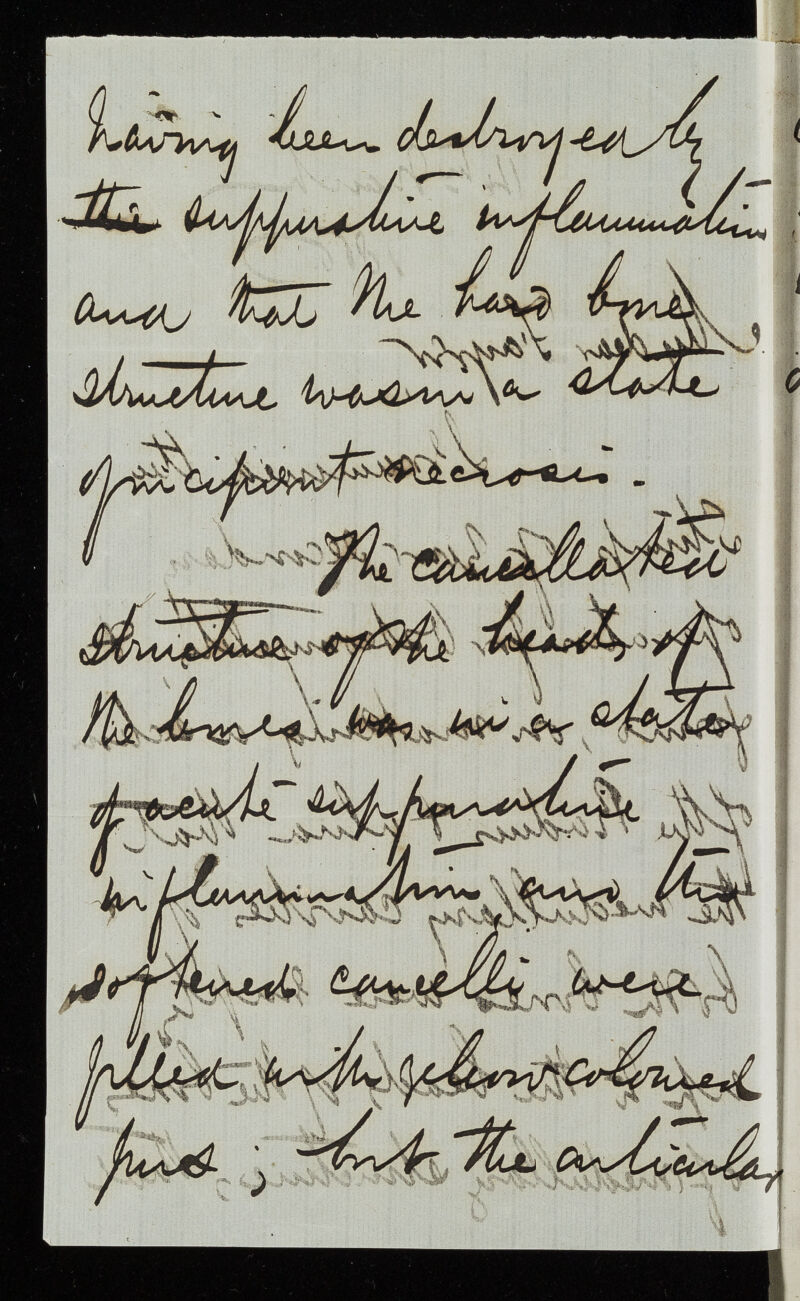 having been destroyed by
the suppurative inflammation
and that the hard bone
structure was in a state
of incipient necrosis.
The cancellated
structure of the heads of
the bones was in a state
of acute suppurative
inflammation and the
softened cancelli were
filled with yellow coloured
pus; but the articular